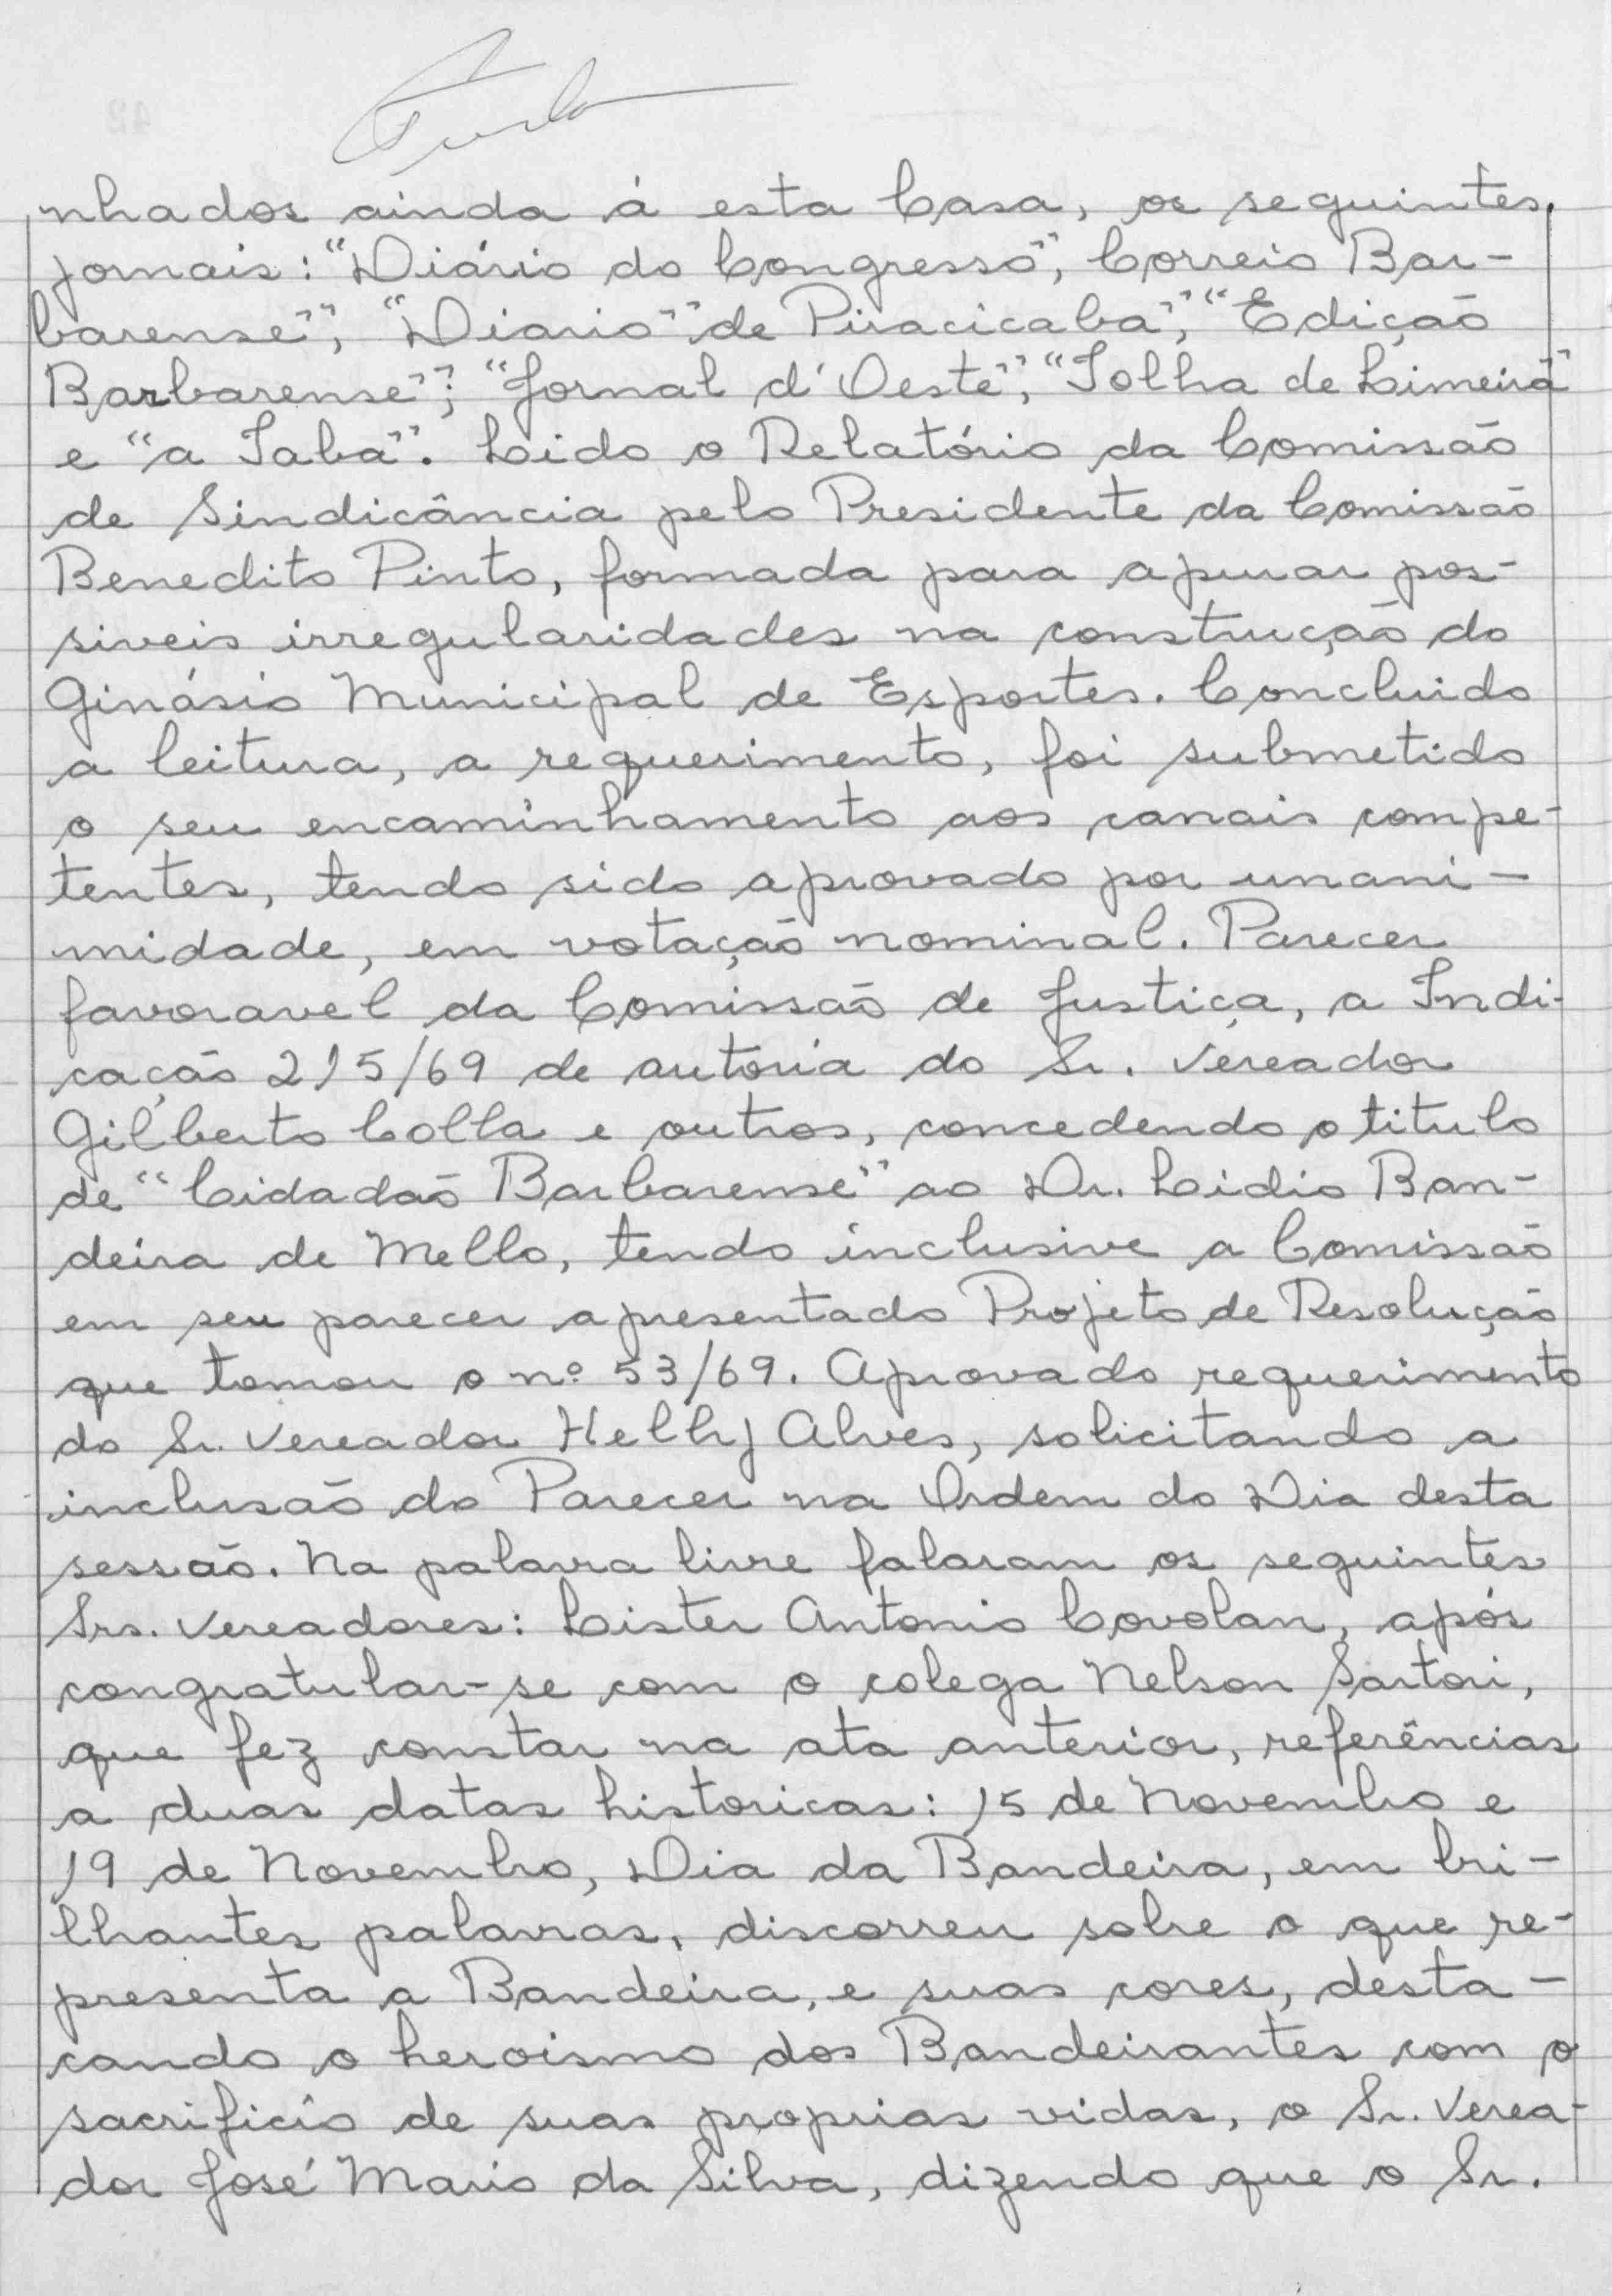 nhados ainda á esta Casa, os seguintes
jornais: "Diário do Congresso", Correio Bar-
barense", "Diario" de Piracicaba", "Edição
Barbarense"; "Jornal d'Oeste", "Folha de Limeira"
e "a Taba". Lido o Relatório da Comissão
de Sindicância pelo Presidente da Comissão
Benedito Pinto, formada para apurar pos-
siveis irregularidades na construção do
Ginásio Municipal de Esportes. Concluido
a leitura, a requerimento, foi submetido
o seu encaminhamento aos canais compe-
tentes, tendo sido aprovado por unani-
midade, em votação nominal. Parecer
favoravel da Comissão de Justiça, a Indi-
cação 215/69 de autoria do Sr. Vereador
Gilberto Colla e outros, concedendo o titulo
de "Cidadão Barbarense" ao Dr. Lidio Ban-
deira de Mello, tendo inclusive a Comissão
em seu parecer apresentado Projeto de Resolução
que tomou o nº 53/69. Aprovado requerimento
do Sr. Vereador Helly Alves, solicitando a
inclusão do Parecer na Ordem do Dia desta
sessão. Na palavra livre falaram os seguintes
Srs. Vereadores: Lister Antonio Covolan, após
congratular-se com o colega Nelson Sartori,
que fez constar na ata anterior, referências
a duas datas historicas: 15 de Novembro e
19 de Novembro, Dia da Bandeira, em bri-
lhantes palavras, discorreu sobre o que re-
presenta a Bandeira, e suas cores, desta-
cando o heroismo dos Bandeirantes com o
sacrificio de suas proprias vidas, o Sr. Verea-
dor José Mario da Silva, dizendo que o Sr.